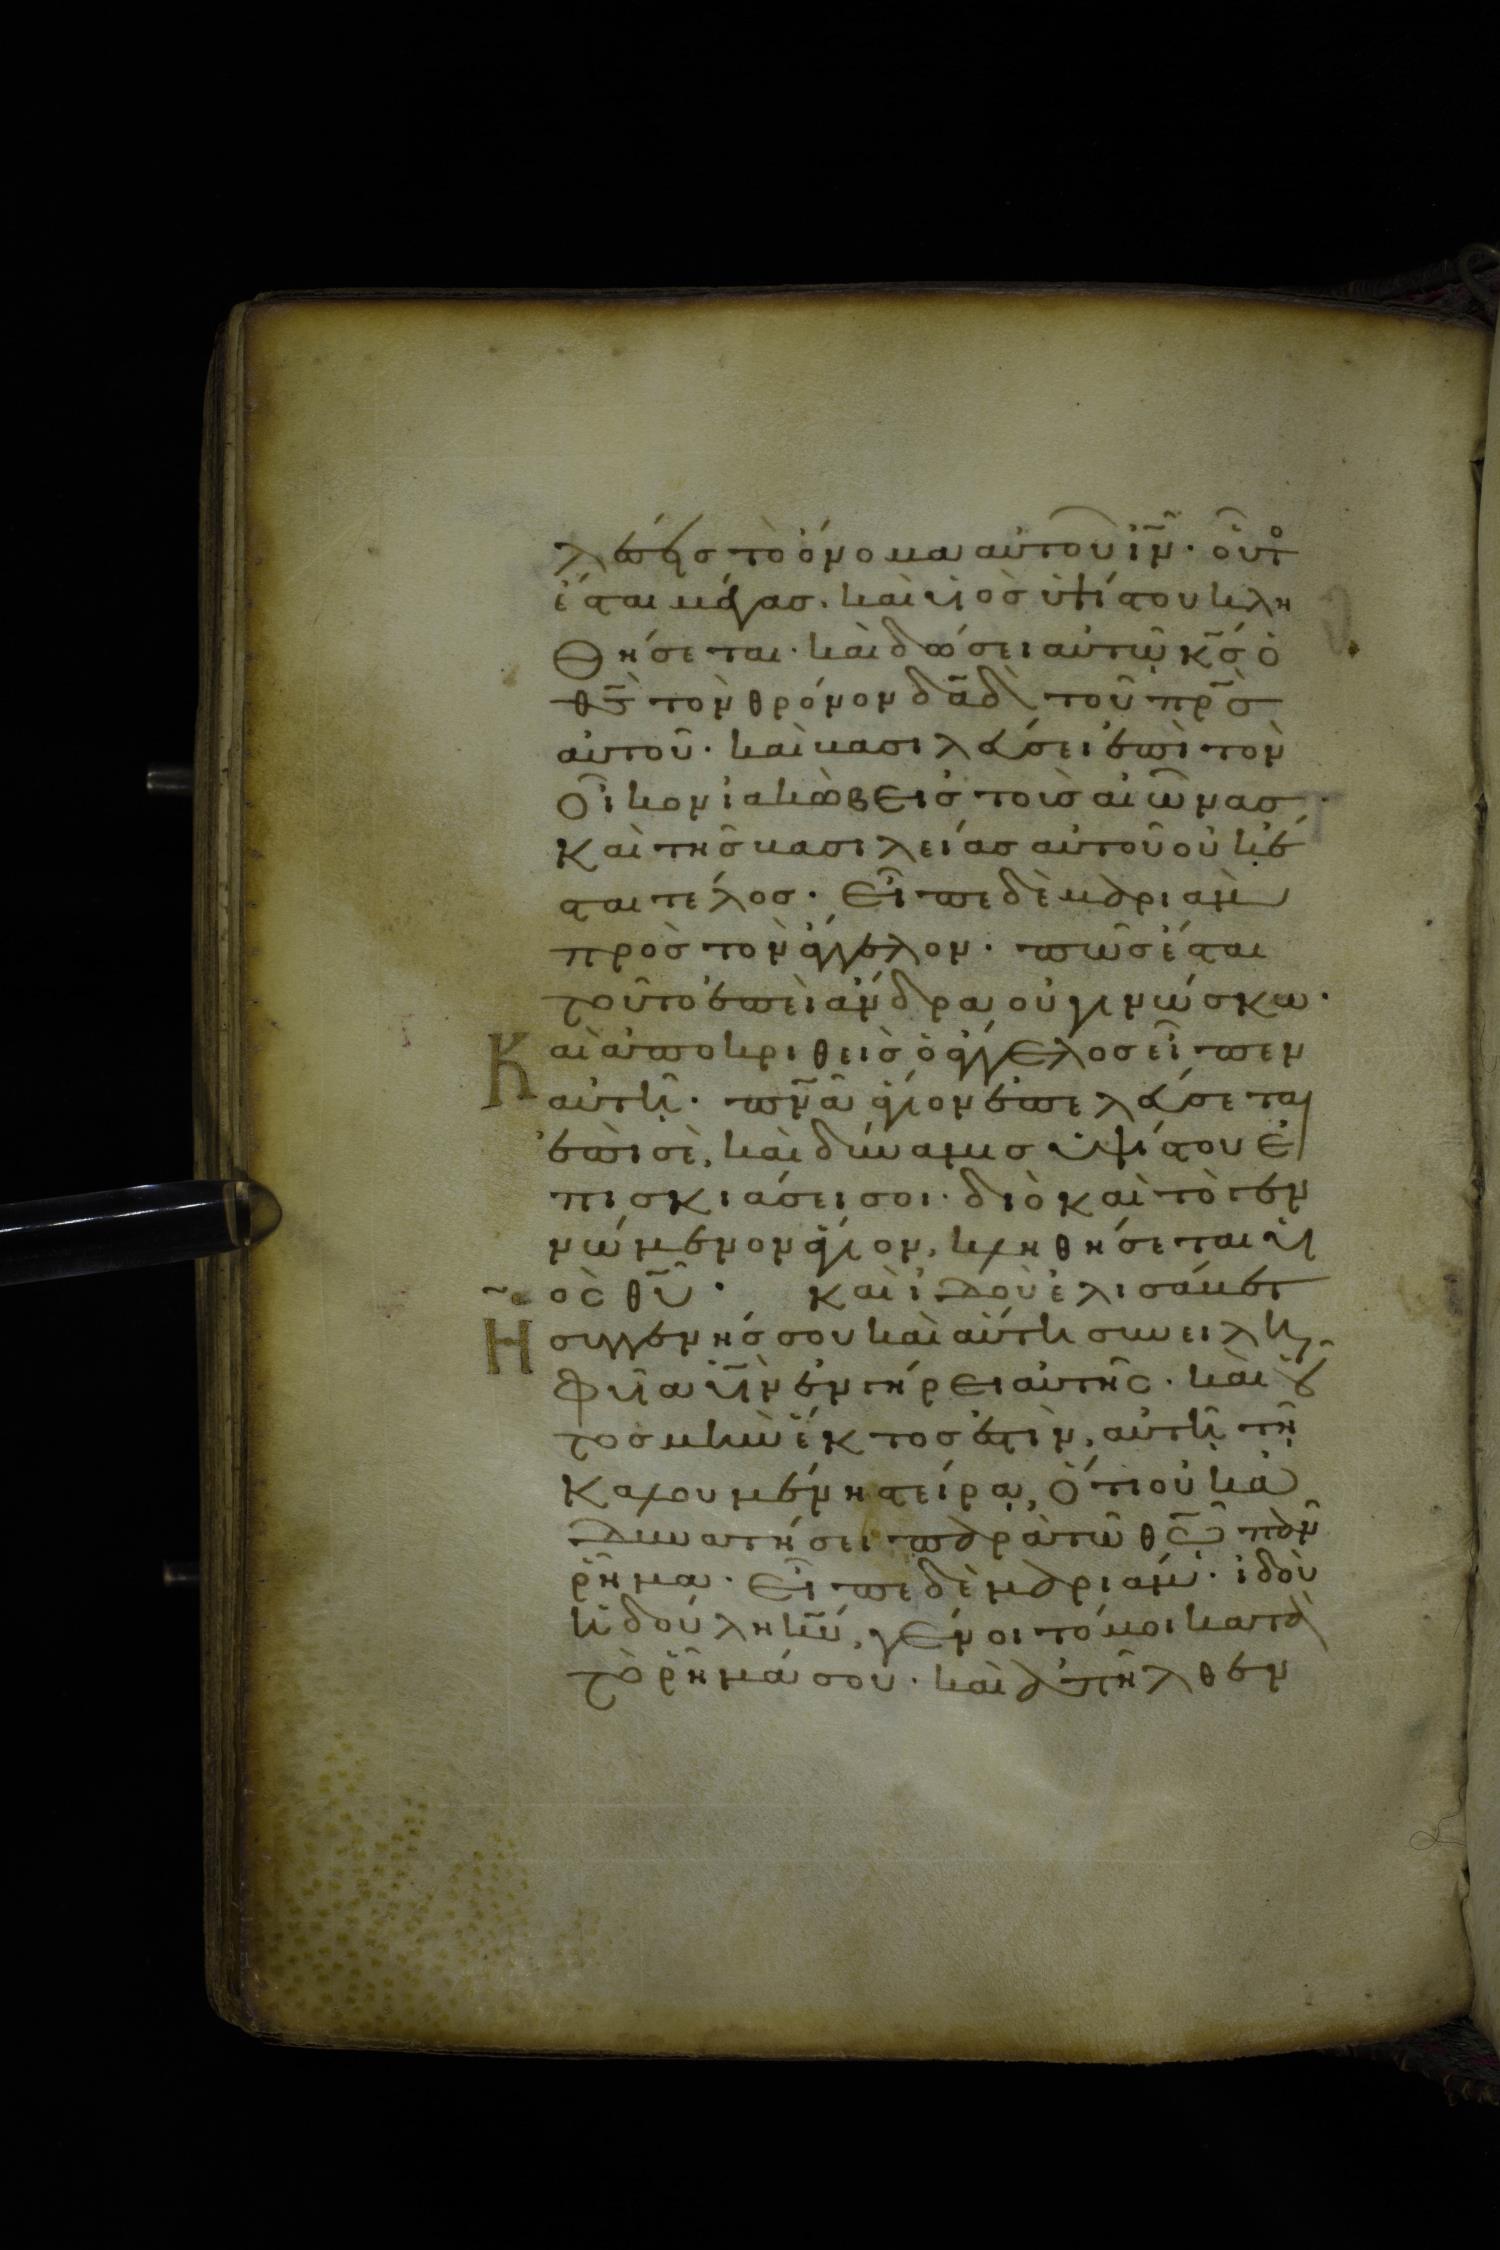 λέσεις τὸ ὄνομα αὐτοῦ ἰ̅ν̅· οὗτο
ἔσται μέγας· καὶ υἱὸς ὑψίστου κλη
θήσεται· καὶ δώσει αὐτῷ κ̅ς̅ ὁ
θ̅ς̅ τὸν θρόνον δ̅α̅δ̅ τοῦ π̅ρ̅ς̅
αὐτοῦ· καὶ βασιλεύσει ἐπὶ τὸν
οἶκον ἰακὼβ εἰς τοὺς αἰῶνας·
Καὶ τῆς βασιλείας αὐτοῦ οὐκ ἔ
σται τέλος· Εἶπε δὲ μαριὰμ
πρὸς τὸν ἄγγελον· πῶς ἔσται
τοῦτο ἐπεὶ ἄνδρα οὐ γινώσκω·
Καὶ ἀποκριθεὶς ὁ ἄγγελος εἶπεν
αὐτῇ· π̅ν̅α̅ ἅγιον ἐπελεύσεται
ἐπὶ σὲ, καὶ δύναμις ὑψίστου ἐ
πισκιάσει σοι· διὸ καὶ τὸ γεν
νώμενον ἅγιον, κληθήσεται υἱ
ὸς θ̅υ̅· Καὶ ἰδοὺ ἐλισάβετ
Ἡ συγγενής σου καὶ αὐτὴ συνειλη
φυῖα υἱὸν ἐν γήρει αὐτῆς· καὶ οὗ
τος μὴν ἕκτος ἐστὶν, αὐτῇ τῇ
Καλουμένῃ στείρᾳ, Ὅτι οὐκ ἀ
δυνατήσει παρὰ τῷ θ̅ω̅ πᾶν
ῥῆμα· Εἶπε δὲ μαριάμ· ἰδοὺ
ἡ δούλη κ̅υ̅, γένοιτό μοι κατὰ
τὸ ῥῆμά σου· καὶ ἀπῆλθεν